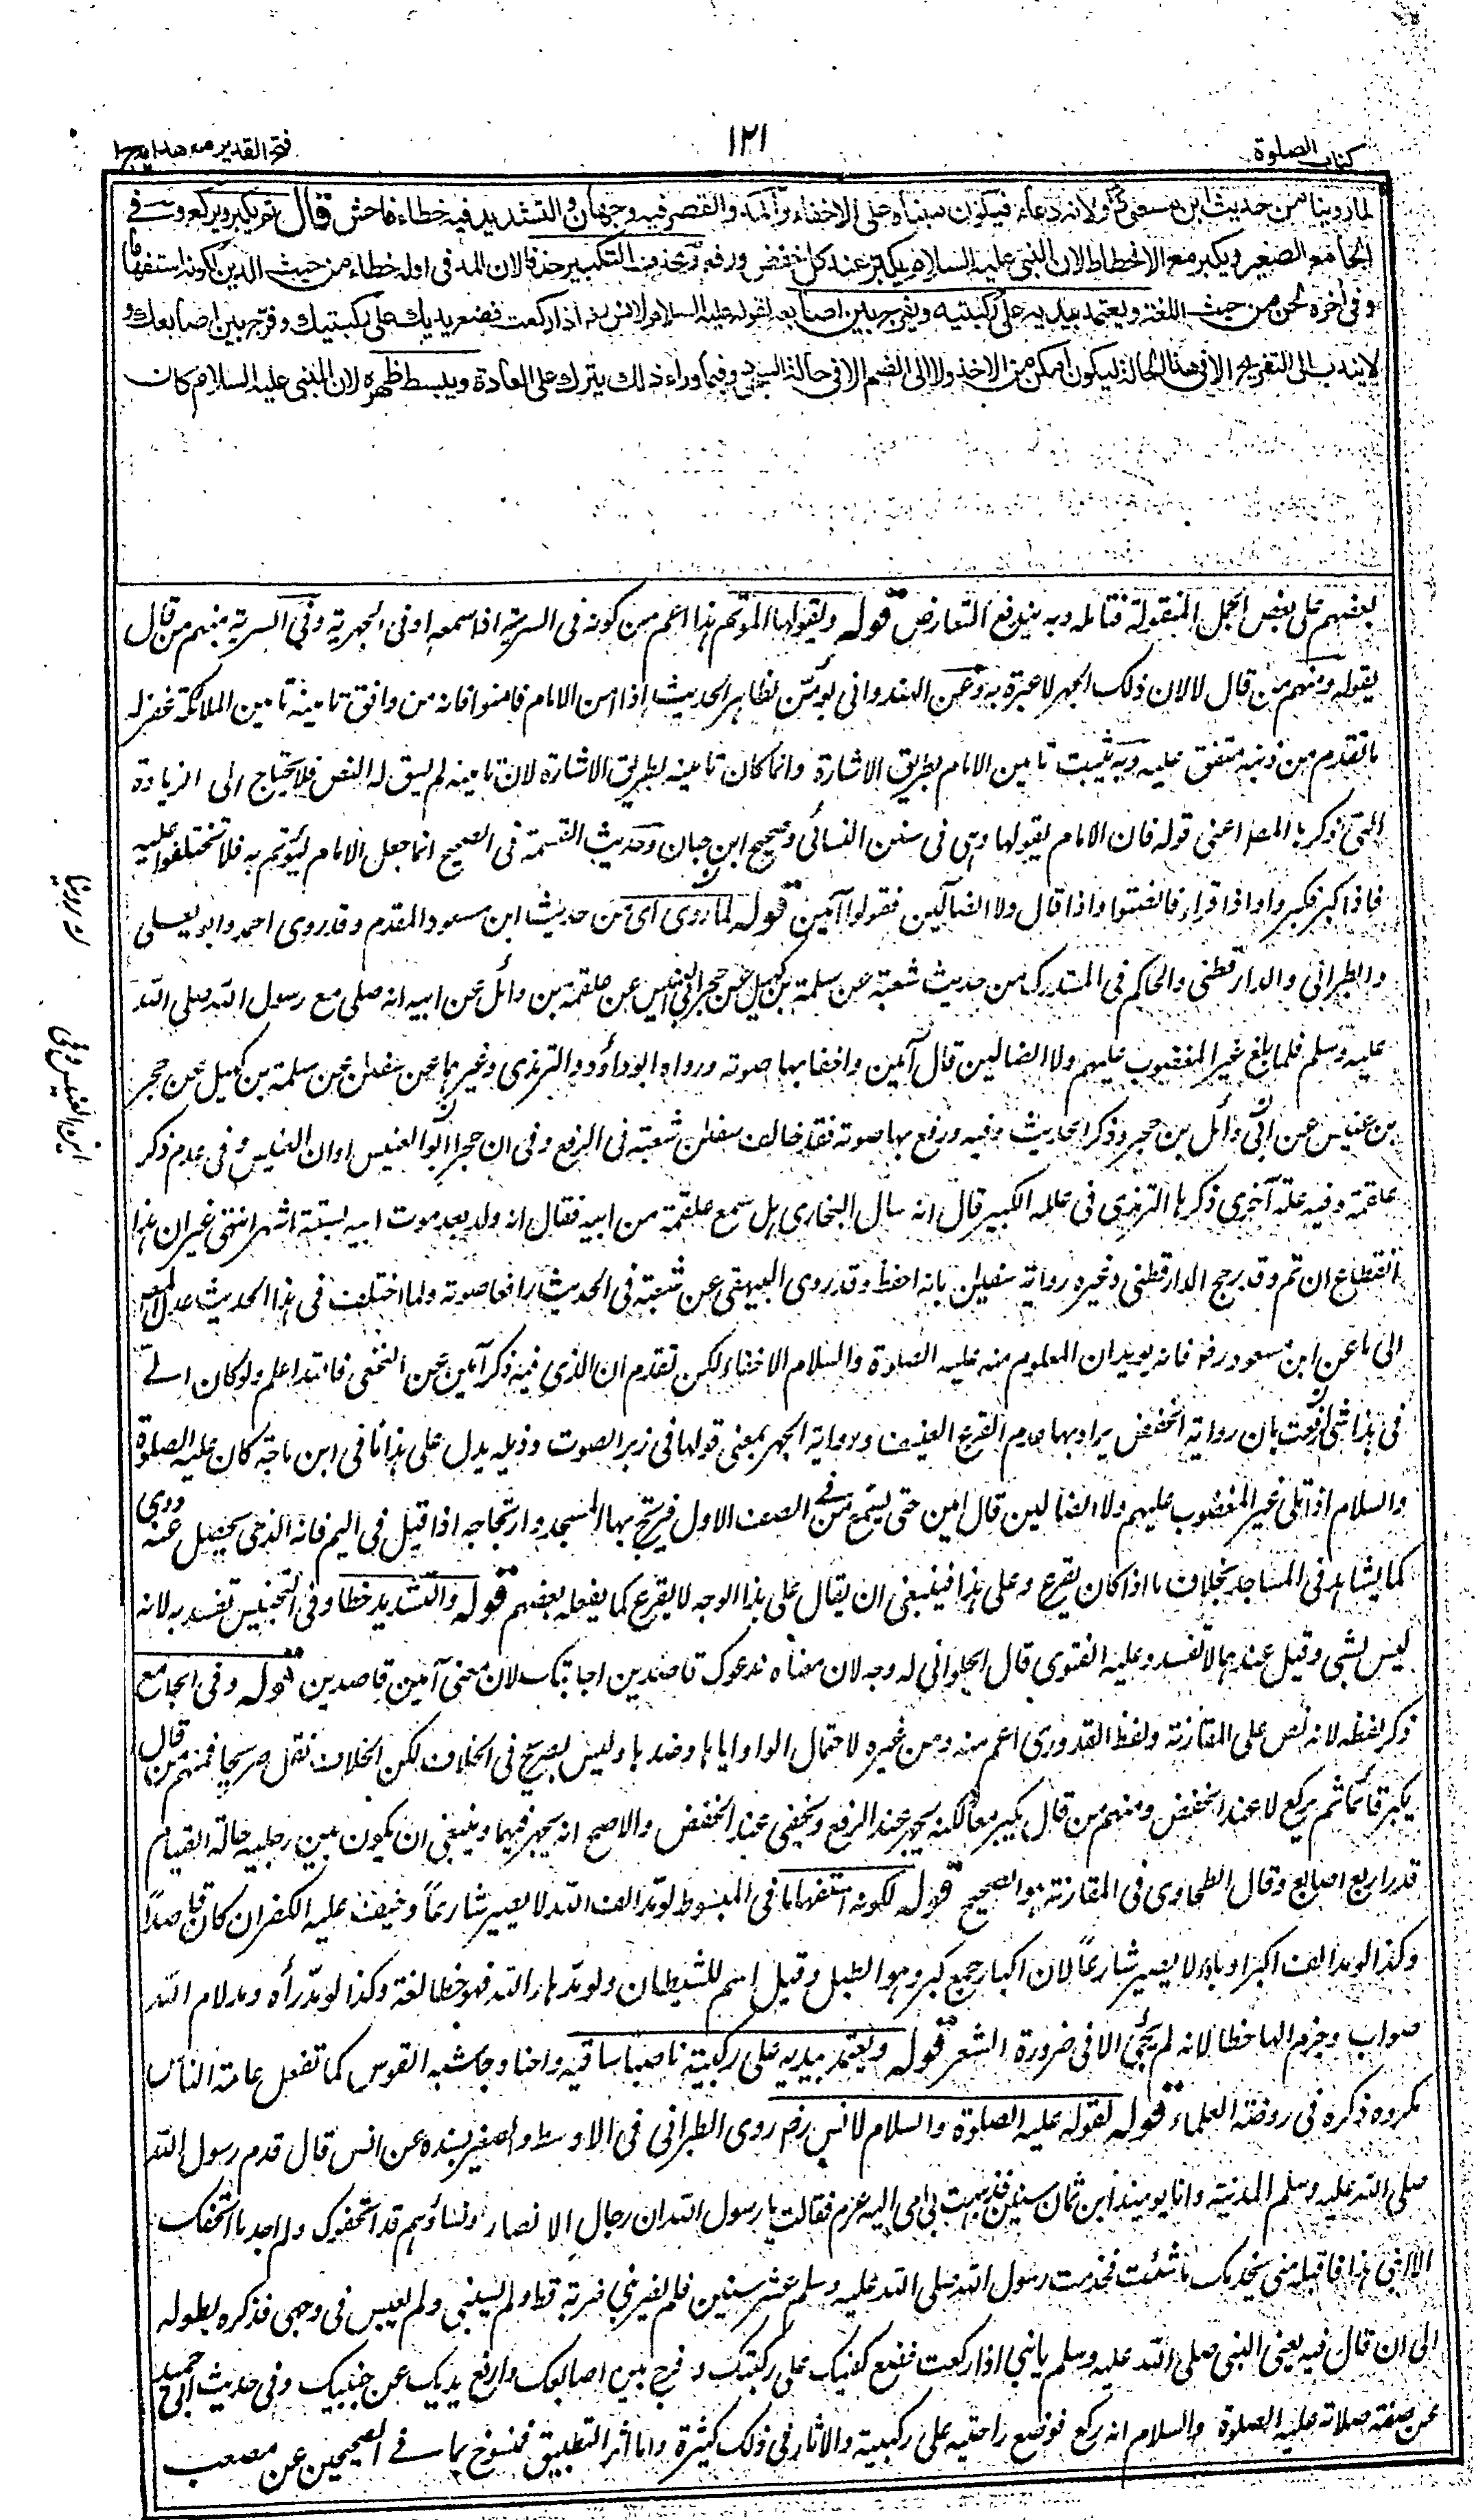 كتاب الصلوة
١٢١
فتح القدير مع هدايه ج ١
لما روينا من حديث ابن مسعود رضي ولانه دعاء فيكون مبناه على الاخفاء والمد والقصر فيه وجهان والتشديد فيه خطاء فاحش قال ثم يكبر ويركع وفي
الجامع الصغير ويكبر مع الانحطاط لان النبي عليه السلام يكبر عند كل خفض ورفع ويحذف التكبير حذفا لان المد في اوله خطاء من حيث الدين لكونه استفهاما
وفي اخره لحن من حيث اللغة ويعتمد بيديه على ركبتيه ويفرج بين اصابعه لقوله عليه السلام لانس رضه اذا ركعت فضع يديك على ركبتيك وفرج بين اصابعك و
لا يندب الى التفريج الا في هذه الحالة ليكون امكن من الاخذ ولا الى الضم الا في حالة السجود وفيما وراء ذلك يترك على العادة ويبسط ظهره لان النبي عليه السلام كان
بعضهم على بعض الجمل المنقولة فتأمله وبه يندفع التعارض قوله ويقولها الموتم هذا اعم من كونه في السرية اذا سمعه او في الجهرية وفي السرية منهم من قال
يقوله ومنهم من قال لا لان ذلك الجهر لا عبرة به وعن الهندواني يؤمن لظاهر الحديث اذا امن الامام فامنوا فانه من وافق تامينه تامين الملائكة غفر له
ما تقدم من ذنبه متفق عليه وبه يثبت تامين الامام بطريق الاشارة وانما كان تامينه بطريق الاشارة لان تامينه لم يسق له النص فلا يحتاج الى الزيادة
التي ذكرها المصـ اعني قوله فان الامام يقولها وهي في سنن النسائي وصحيح ابن حبان وحديث القسمة في الصحيح انما جعل الامام ليؤتم به فلا تختلفوا عليه
فاذا كبر فكبروا واذا قرا فانصتوا واذا قال ولا الضالين فقولوا آمين قوله لما روى اى من حديث ابن مسعود المتقدم وقد روى احمد وابو يعلى
والطبراني والدارقطني والحاكم في المستدرك من حديث شعبة عن سلمة بن كهيل عن حجر ابي العنبس عن علقمة بن وائل عن ابيه انه صلى مع رسول الله صلى الله
عليه وسلم فلما بلغ غير المغضوب عليهم ولا الضالين قال آمين واخفا بها صوته ورواه ابو داؤد والترمذي وغيرهما عن سفين عن سلمة بن كهيل عن حجر
بن عنبس عن ابي وائل بن حجر وذكر الحديث وفيه ورفع بها صوته فقد خالف سفين شعبة في الرفع وفي ان حجرا ابو العنبس او ابن العنبس وفي عدم ذكر
علقمة وفيه علة آخرى ذكرها الترمذي في علله الكبير قال انه سأل البخاري هل سمع علقمة من ابيه فقال انه ولد بعد موت ابيه بستة اشهر انتهى غير ان هذا
انقطاع ان تم وقد رجح الدارقطني وغيره رواية سفين بانه احفظ وقد روى البيهقي عن شعبة في الحديث رافعا صوته ولما اختلف في هذا الحديث عدل المصـ
الى ما عن ابن مسعود رضه فانه يويد ان المعلوم منه عليه الصلوة والسلام الاخفاء لكن تقدم ان الذي فيه ذكر آمين عن النخعي فالله اعلم ولو كان الي
في هذا شئ لوفقت بان رواية الخفض يراد بها عدم القرع العنيف ورواية الجهر بمعنى قولها في زبر الصوت وذيله يدل على هذا ما في ابن ماجة كان عليه الصلوة
والسلام اذا تلى غير المغضوب عليهم ولا الضالين قال امين حتى يسمع من في الصف الاول فيرتج بها المسجد وارتجاجه اذا قيل في اليم فانه الذي يحصل عنه دوى
كما يشاهد في المساجد بخلاف ما اذا كان بقرع وعلى هذا فينبغي ان يقال على هذا الوجه لا بقرع كما يفعله بعضهم قوله والتشديد خطا وفي التجنيس تفسد به لانه
ليس بشي وقيل عندهما لا تفسد وعليه الفتوى قال الحلواني له وجه لان معناه ندعوك قاصدين اجابتك لان معنى آمين قاصدين قوله وفي الجامع
ذكر لفظه لانه نص على المقارنة ولفظ القدوري اعم منه ومن غيره لاحتمال الواو اياها وضدها وليس بصريح في الخلاف لكن الخلاف نقل صريحا فمنهم من قال
يكبر قائما ثم يركع لا عند الخفض ومنهم من قال يكبر معا لكنه يجهر عند الرفع ويخفي عند الخفض والاصح انه يجهر فيهما وينبغي ان يكون بين رجليه حالة القيام
قدر اربع اصابع وقال الطحاوي في المقارنة هو الصحيح قوله لكونه استفهاما في المبسوط لو مد الف الله لا يصير شارعا وخيف عليه الكفر ان كان قاصدا
وكذا لو مد الف اكبر او باءه لا يصير شارعا لان اكبار جمع كبر وهو الطبل وقيل اسم للشيطان ولو مد هاء الله فهو خطا لغة وكذا لو مد رأه ومد لام الله
صواب وجزم الها خطا لانه لم يجئ الا في ضرورة الشعر قوله ويعتمد بيديه على ركبتيه ناصبا ساقيه واحناوهما شبه القوس كما تفعل عامة الناس
مكروه ذكره في روضة العلماء قوله لقوله عليه الصلوة والسلام لانس رضه روى الطبراني في الاوسط والصغير بسنده عن انس قال قدم رسول الله
صلى الله عليه وسلم المدينة وانا يومئذ ابن ثمان سنين فذهبت بي امي اليه عزم فقالت يا رسول الله ان رجال الانصار ونساؤهم قد اتحفوك ولم اجد ما اتحفك
الا ابني هذا فاقبله مني يخدمك ما شئت فخدمت رسول الله صلى الله عليه وسلم عشر سنين فلم يضربني ضربة قط ولم يسبني ولم يعبس في وجهي فذكره بطوله
الى ان قال فيه يعني النبي صلى الله عليه وسلم يا بني اذا ركعت فضع كفيك على ركبتيك وفرج بين اصابعك وارفع يديك عن جنبيك وفي حديث ابي حميد
عن صفة صلاته عليه الصلوة والسلام انه ركع فوضع راحتيه على ركبتيه والاثار في ذلك كثيرة واما اثر التطبيق فمنسوخ بما في الصحيحين عن مصعب